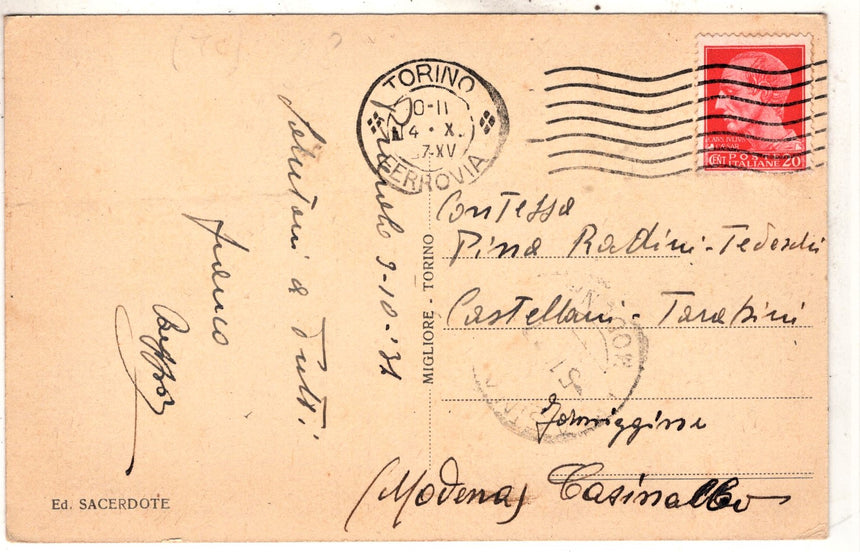 TORINO
10-11
14 · X.
37-XV
FERROVIA
CENT POSTE 20
ITALIANE
Pinerolo 9-10-'37
Saluti a tutti
franco
Beppe
Contessa
Pina Radini-Tedeschi
Castellani-Tarabini
Formiggine
(Modena) Casinalbo
MODENA
MIGLIORE - TORINO
Ed. SACERDOTE